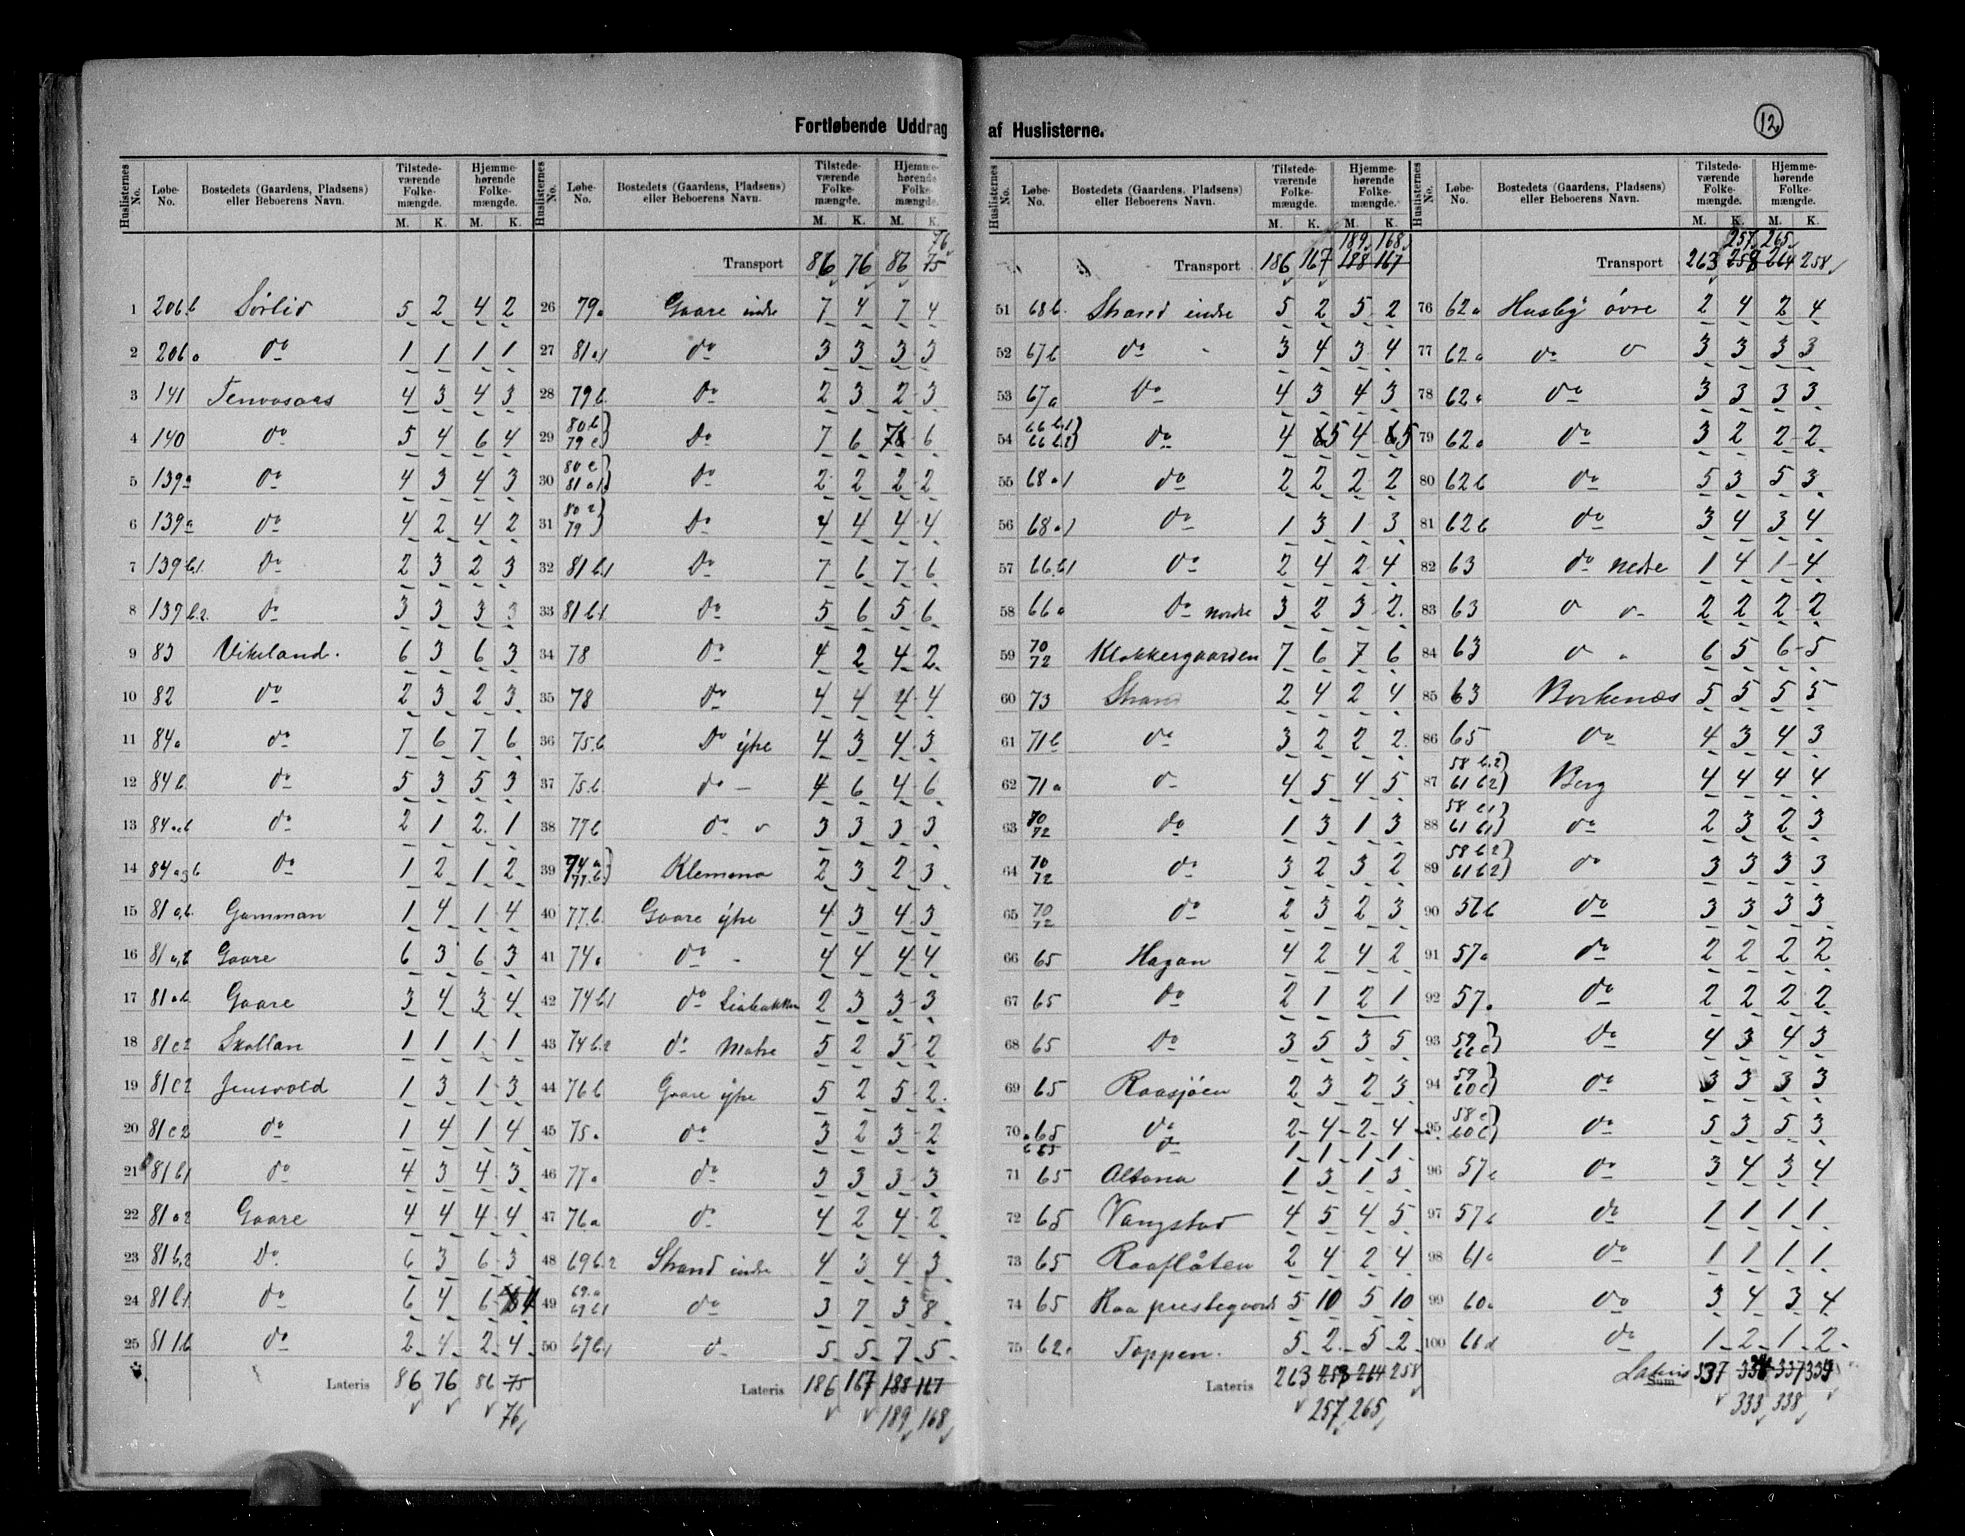 Fortløbende Uddrag af Huslisterne.
12
Huslisternes No. Løbe-No. Bostedets (Gaardens, Pladsens) eller Beboerens Navn. Tilstedeværende Folkemængde. M. K. Hjemmehørende Folkemængde. M. K.
1 206b Sørlid 5 2 4 2
2 206a do 1 1 1 1
3 141 Tenvasaas 4 3 4 3
4 140 do 5 4 6 4
5 139a do 4 3 4 3
6 139a do 4 2 4 2
7 139b.1. do 2 3 2 3
8 139b.2. do 3 3 3 3
9 83 Vikeland. 6 3 6 3
10 82 do 2 3 2 3
11 84a do 7 6 7 6
12 84b. do 5 3 5 3
13 84 do 2 1 2 1
14 84 do 1 2 1 2
15 81 a,b. Gamman 1 4 1 4
16 81 a,2 Gaare 6 3 6 3
17 81 a b. Gaare 3 4 3 4
18 81 c2 Skallan 1 1 1 1
19 81 c2 Jensvold 1 3 1 3
20 81 c2 do 1 4 1 4
21 81 b1 do 4 3 4 3
22 81 a2 Gaare 4 4 4 4
23 81 b,2 Do 6 3 6 3
24 81 b1 do 6 4 6 4
25 81 1.b do 2 4 2 4
Lateris 86 76 86 75
76
Huslisternes No. Løbe-No. Bostedets (Gaardens, Pladsens) eller Beboerens Navn. Tilstedeværende Folkemængde. M. K. Hjemmehørende Folkemængde. M. K.
76
Transport 86 76 86 75
26 79a Gaare indre 7 4 7 4
27 81a1 do 3 3 3 3
28 79b. do 2 3 2 3
29 80b 79c) Do 7 6 7 6
30 80c 81a1) Do 2 2 2 2
31 80 79) Do 4 4 4 4
32 81b.1 Do 7 6 7 6
33 81b1 Do 5 6 5 6
34 78 do 4 2 4 2
35 78 do 4 4 4 4
36 75.b Do ytre 4 3 4 3
37 75.b. do — 4 6 4 6
38 77b do 3 3 3 3
39 74a 77.b) Klemma 2 3 2 3
40 77.b. Gaare ytre 4 3 4 3
41 74a do 4 4 4 4
42 74b.1 do Liabakken 2 3 3 3
43 74b.2 do Matre 5 2 5 2
44 76b Gaare ytre 5 2 5 2.
45 75a do 3 2 3 2
46 77a do 3 3 3 3
47 76a do 4 2 4 2
48 69b.2 Strand indre 4 3 4 3
49 69.a 69b1 do 3 7 3 8
50 67b1 do 5 5 7 5
Lateris 186 167 188 167
189 168
Huslisternes No. Løbe-No. Bostedets (Gaardens, Pladsens) eller Beboerens Navn. Tilstedeværende Folkemængde. M. K. Hjemmehørende Folkemængde. M. K.
189 168
Transport 186 167 188 167
51 68b. Strand indre 5 2 5 2
52 67b do 3 4 3 4
53 67a do 4 3 4 3
54 66b.1 66b.2) do 4 5 4 5
55 68a1 do 2 2 2 2
56 68a1 do 1 3 1 3
57 66.b1 do 2 4 2 4
58 66a do nordre 3 2 3 2.
59 70 72 Klokkergaarden 7 6 7 6
60 73 Strand 2 4 2 4
61 71b do 3 2 2 2
62 71a do 4 5 4 5
63 70 72 do 1 3 1 3
64 70 72 do 3 2 3 2
65 70 72 do 2 3 2 3
66 65 Hagan 4 2 4 2
67 65 do 2 1 2 1
68 65 Do 3 5 3 5
69 65 Raasjøen 2 3 2 3
70 a 65 do 2 4 2 4
b 65 do 1 1 1 1
71 65 Altona 1 3 1 3
72 65 Vangstad 4 5 4 5
73 65 Raaflåten 2 4 2 4
74 65 Raa prestegaard 5 10 5 10
75 62a Toppen. 5 2 5 2
Lateris 263 258 264 258
257 265
Huslisternes No. Løbe-No. Bostedets (Gaardens, Pladsens) eller Beboerens Navn. Tilstedeværende Folkemængde. M. K. Hjemmehørende Folkemængde. M. K.
257 265
Transport 263 258 264 258
76 62a Husby övre 2 4 2 4
77 62a do 3 3 3 3
78 62a do 3 3 3 3
79 62a do 3 2 2 2
80 62b do 5 3 5 3
81 62b do 3 4 3 4
82 63 do nedre 1 4 1 4
83 63 2 2 2 2
84 63 6 5 6 5
85 63 Borkenæs 5 5 5 5
86 65 do 4 3 4 3
87 58 b.2 61 b2) Berg 4 4 4 4
88 58 c1 61 b1) do 2 3 2 3
89 58 b2 61 b2) do 3 3 3 3
90 56b do 3 3 3 3
91 57a do 2 2 2 2
92 57a do 2 2 2 2
93 59 66c) do 4 3 4 3
94 59 60c) do 3 3 3 3
95 58 c 60 c) do 5 3 5 3
96 57c do 3 4 3 4
97 57b do 1 1 1 1
98 61a do 1 1 1 1
99 60a do 3 4 3 4
100 66d do 1 2 1 2
Lateris Sum 337 334 337 334
333 338